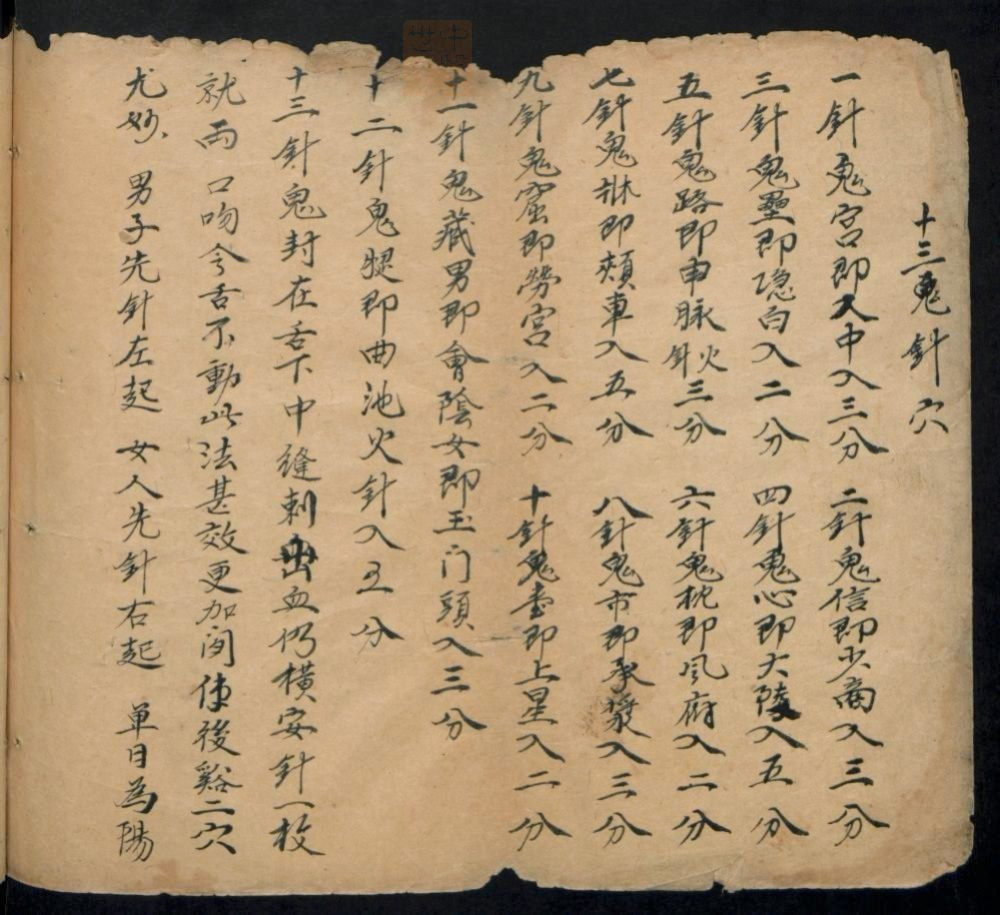 十三鬼針穴
一針鬼宮即人中入三分 二針鬼信即少商入三分
三針鬼壘即隱白入二分 四針鬼心即大陵入五分
五針鬼路即申脉火針三分 六針鬼枕即風府入二分
七針鬼牀即頰車入五分 八針鬼市即承漿入三分
九針鬼窟即勞宮入二分 十針鬼臺即上星入二分
十一針鬼藏男即會陰女即玉门頭入三分
十二針鬼腿即曲池火針入五分
十三針鬼封在舌下中縫刺出血仍橫安針一枚
就両 口吻令舌不動此法甚效更加间使後谿二穴
尤妙 男子先針左起 女人先針右起 单日為陽